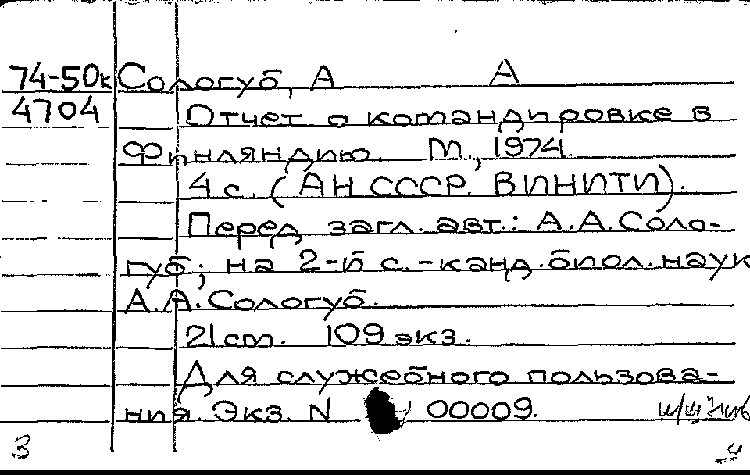 74-50к Сологуб, А А
4704 Отчет о командировке в
Финляндию. М., 1974
4 с. (АН СССР. ВИНИТИ).
Перед загл. авт.: А.А.Соло-
губ; на 2-й с. - канд. биол. наук
А.А.Сологуб.
21 см. 109 экз.
Для служебного пользова-
ния. Экз. N 00009.
3